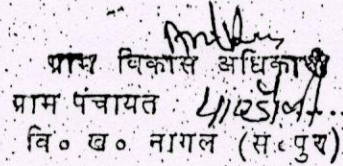 ग्राम विकास अधिकारी
ग्राम पंचायत
वि० ख० नागल (स.पुर)